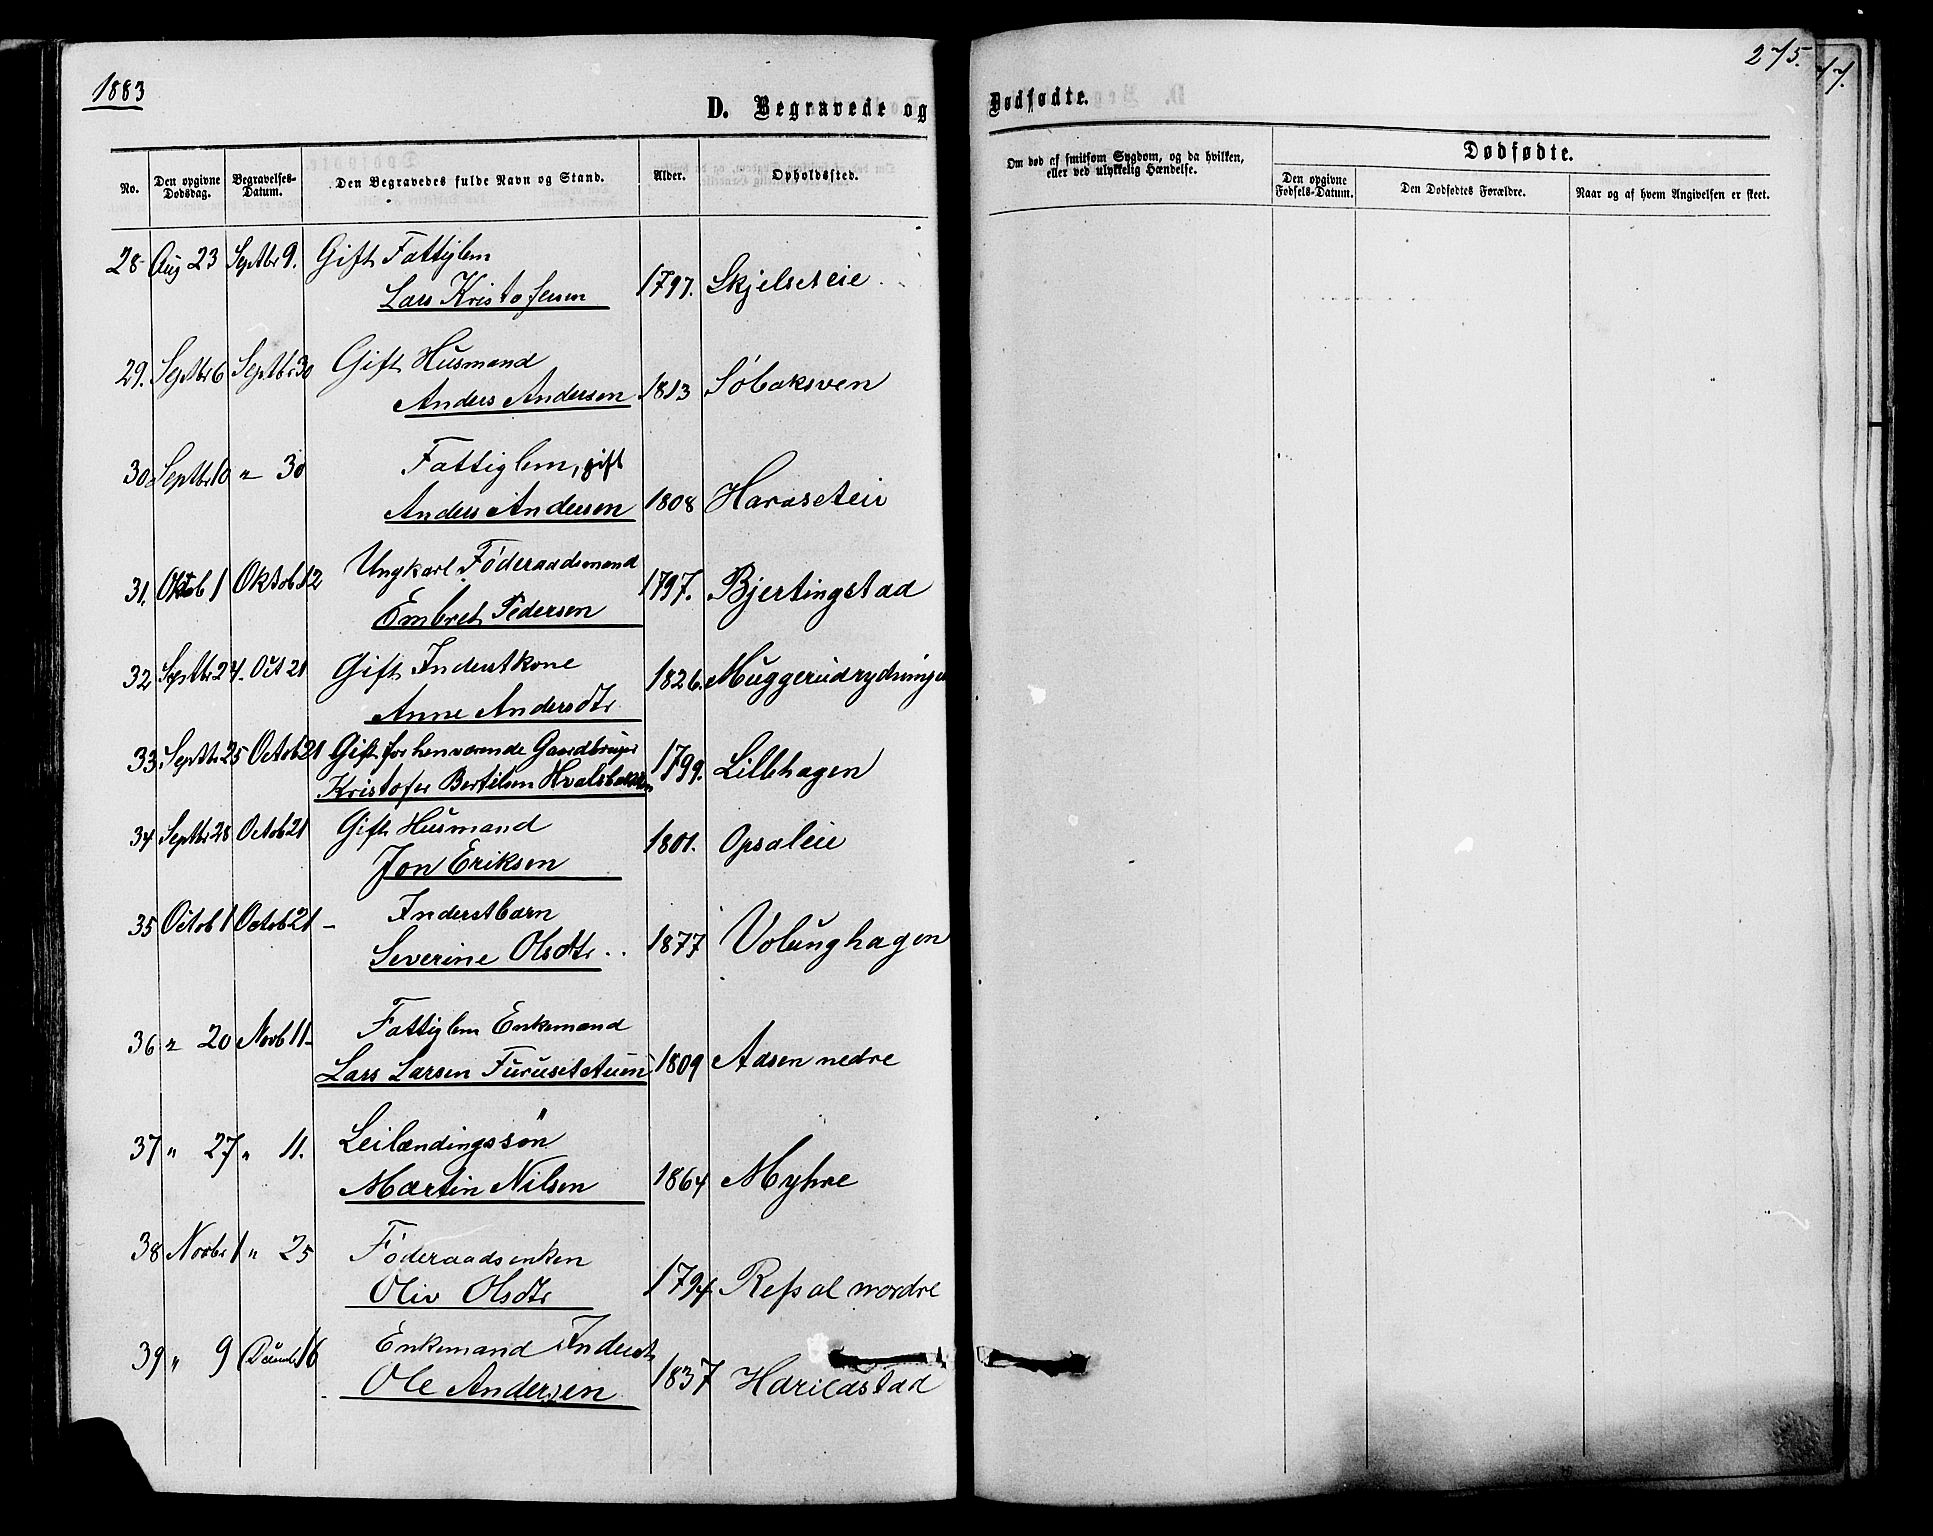 1883
275.
D. Begravede og Dødfødte.
No. Den opgivne Dødsdag. Begravelses-Datum. Den Begravedes fulde Navn og Stand. Alder. Opholdssted. Om død af smitsom Sygdom, og da hvilken, eller ved ulykkelig Hændelse. Dødfødte.
Den opgivne Fødsels-Datum. Den Dødfødtes Forældre. Naar og af hvem Angivelsen er skeet.
28 Aug 23 Septbr 9. Gift Fattiglem
Lars Kristofersen 1797. Skjelseteie
29. Septbr 6 Septbr 30 Gift Husmand
Anders Andersen 1813 Sóbaksven
30 Septbr 10 " 30 Fattiglem, gift
Anders Andersen 1808 Haraseteie
31. Oktob 1 Oktob 12 Ungkarl Fóderaadsmand
Embret Pedersen 1797. Bjertingstad
32 Septbr 24. Oct 21 Gift Inderstkone
Anne Andersdtr 1826. Muggerudrydningen
33 Septbr 25 Octob 21 Gift forhenværende Gaardbruger
Kristofer Bertilsen Hvalsbakken 1799. Lillehagen
34 Septbr 28 Octob 21 Gift Husmand
Jon Eriksen 1801. Opsaleie
35 Octob 1 Octob 21 - Inderstbarn
Severine Olsdtr. 1877 Volunghagen
36 " 20 Novb 11- Fattiglem Enkemand
Lars Larsen 1809 Aasen nedre
37 " 27 " 11. Leilændingssøn
Martin Nilsen 1864 Myhre
38 Novbr 1 " 25 Fóderaadsenken
Oliv Olsdtr 1794. Refsal nordre
39 " 9 16 Enkemand Inderst
Ole Andersen 1837 Harildstad